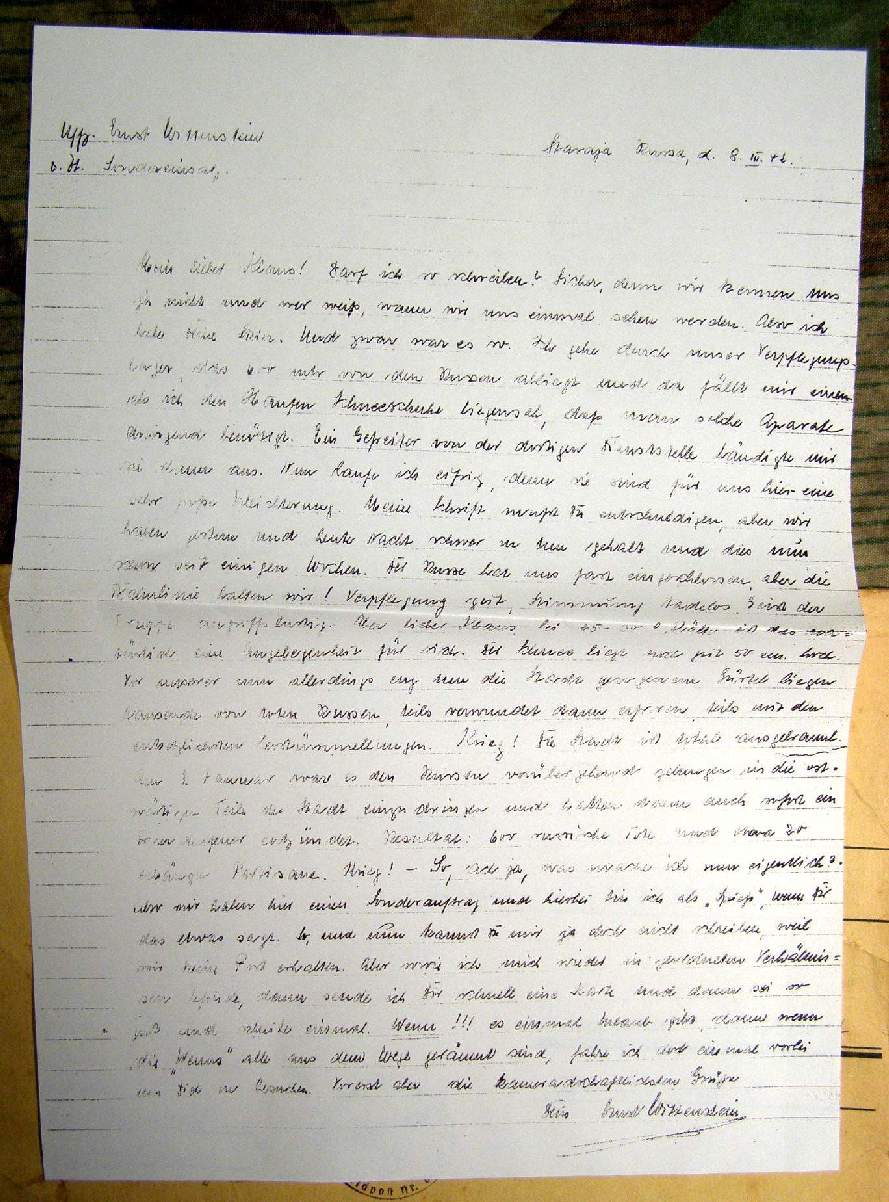 Uffz. Ernst Wittenstein
z. Zt. Sondereinsatz.
Staraja Russa, d. 8. III. 42.
Mein lieber Hans! Darf ich so schreiben? Sicher, denn wir kennen uns
ja nicht und wer weiß, wann wir uns einmal sehen werden. Also ich
habe Deine Skier. Und zwar war es so. Ich gehe durch unser Verpflegungs-
lager, das 600 mtr von den Russen abliegt und da fällt mir ein
als ich den Haufen Schneeschuhe liegen seh, daß man solche Aparate
dringend benötigt. Ein Gefreiter von der dortigen Dienststelle händigte mir
sie dann aus. Nun laufe ich eifrig, denn sie sind für uns hier eine
sehr große Erleichterung. Meine Schrift mußt Du entschuldigen, aber wir
haben gestern und heute Nacht schwer zu tun gehabt und dies nun
schon seit einigen Wochen. Der Russe hat uns fast eingeschlossen, aber die
Bahnlinie halten wir! Verpflegung gut, Stimmung tadellos, Geist der
Truppe angriffslustig. Aber lieber Hans, bei 45-50° Kälte ist das
eine Angelegenheit für sich. Der Schnee liegt noch gut 50 cm. hoch.
Vor unserer nun allerdings eng um die Stadt gezogenen Gürtel liegen
tausende von toten Russen, teils verwundet dann erfroren, teils mit den
entsetzlichsten Verstümmellungen. Krieg! Die Stadt ist total ausgebrannt.
Am Januar war es den Russen vorübergehend gelungen in die ost-
wärtigen Teile der Stadt einzudringen und hatten dann auch sofort ein
entzündet. Resultat: 600 russische Tote und etwa 30
Partisane. Krieg! - So, ach ja, was mache ich nun eigentlich?
Also wir haben hier einen Sonderauftrag und hierbei bin ich als „Spieß", wenn Dir
das etwas sagt. So, und nun kannst Du mir ja doch nicht schreiben, weil
wir keine Post erhalten. Aber sowie ich mich wieder in geordneten Verhältnis-
sen befinde, dann sende ich Dir schnell eine Karte und dann sei so
gut und schreibe einmal. Wenn !!! es einmal Urlaub gibt, dann wenn
die „Wenns" alle aus dem Wege geräumt sind, fahre ich dort einmal vorbei
um Dich zu besuchen. Vorerst aber die kameradschaftlichsten Grüße
Dein Ernst Wittenstein